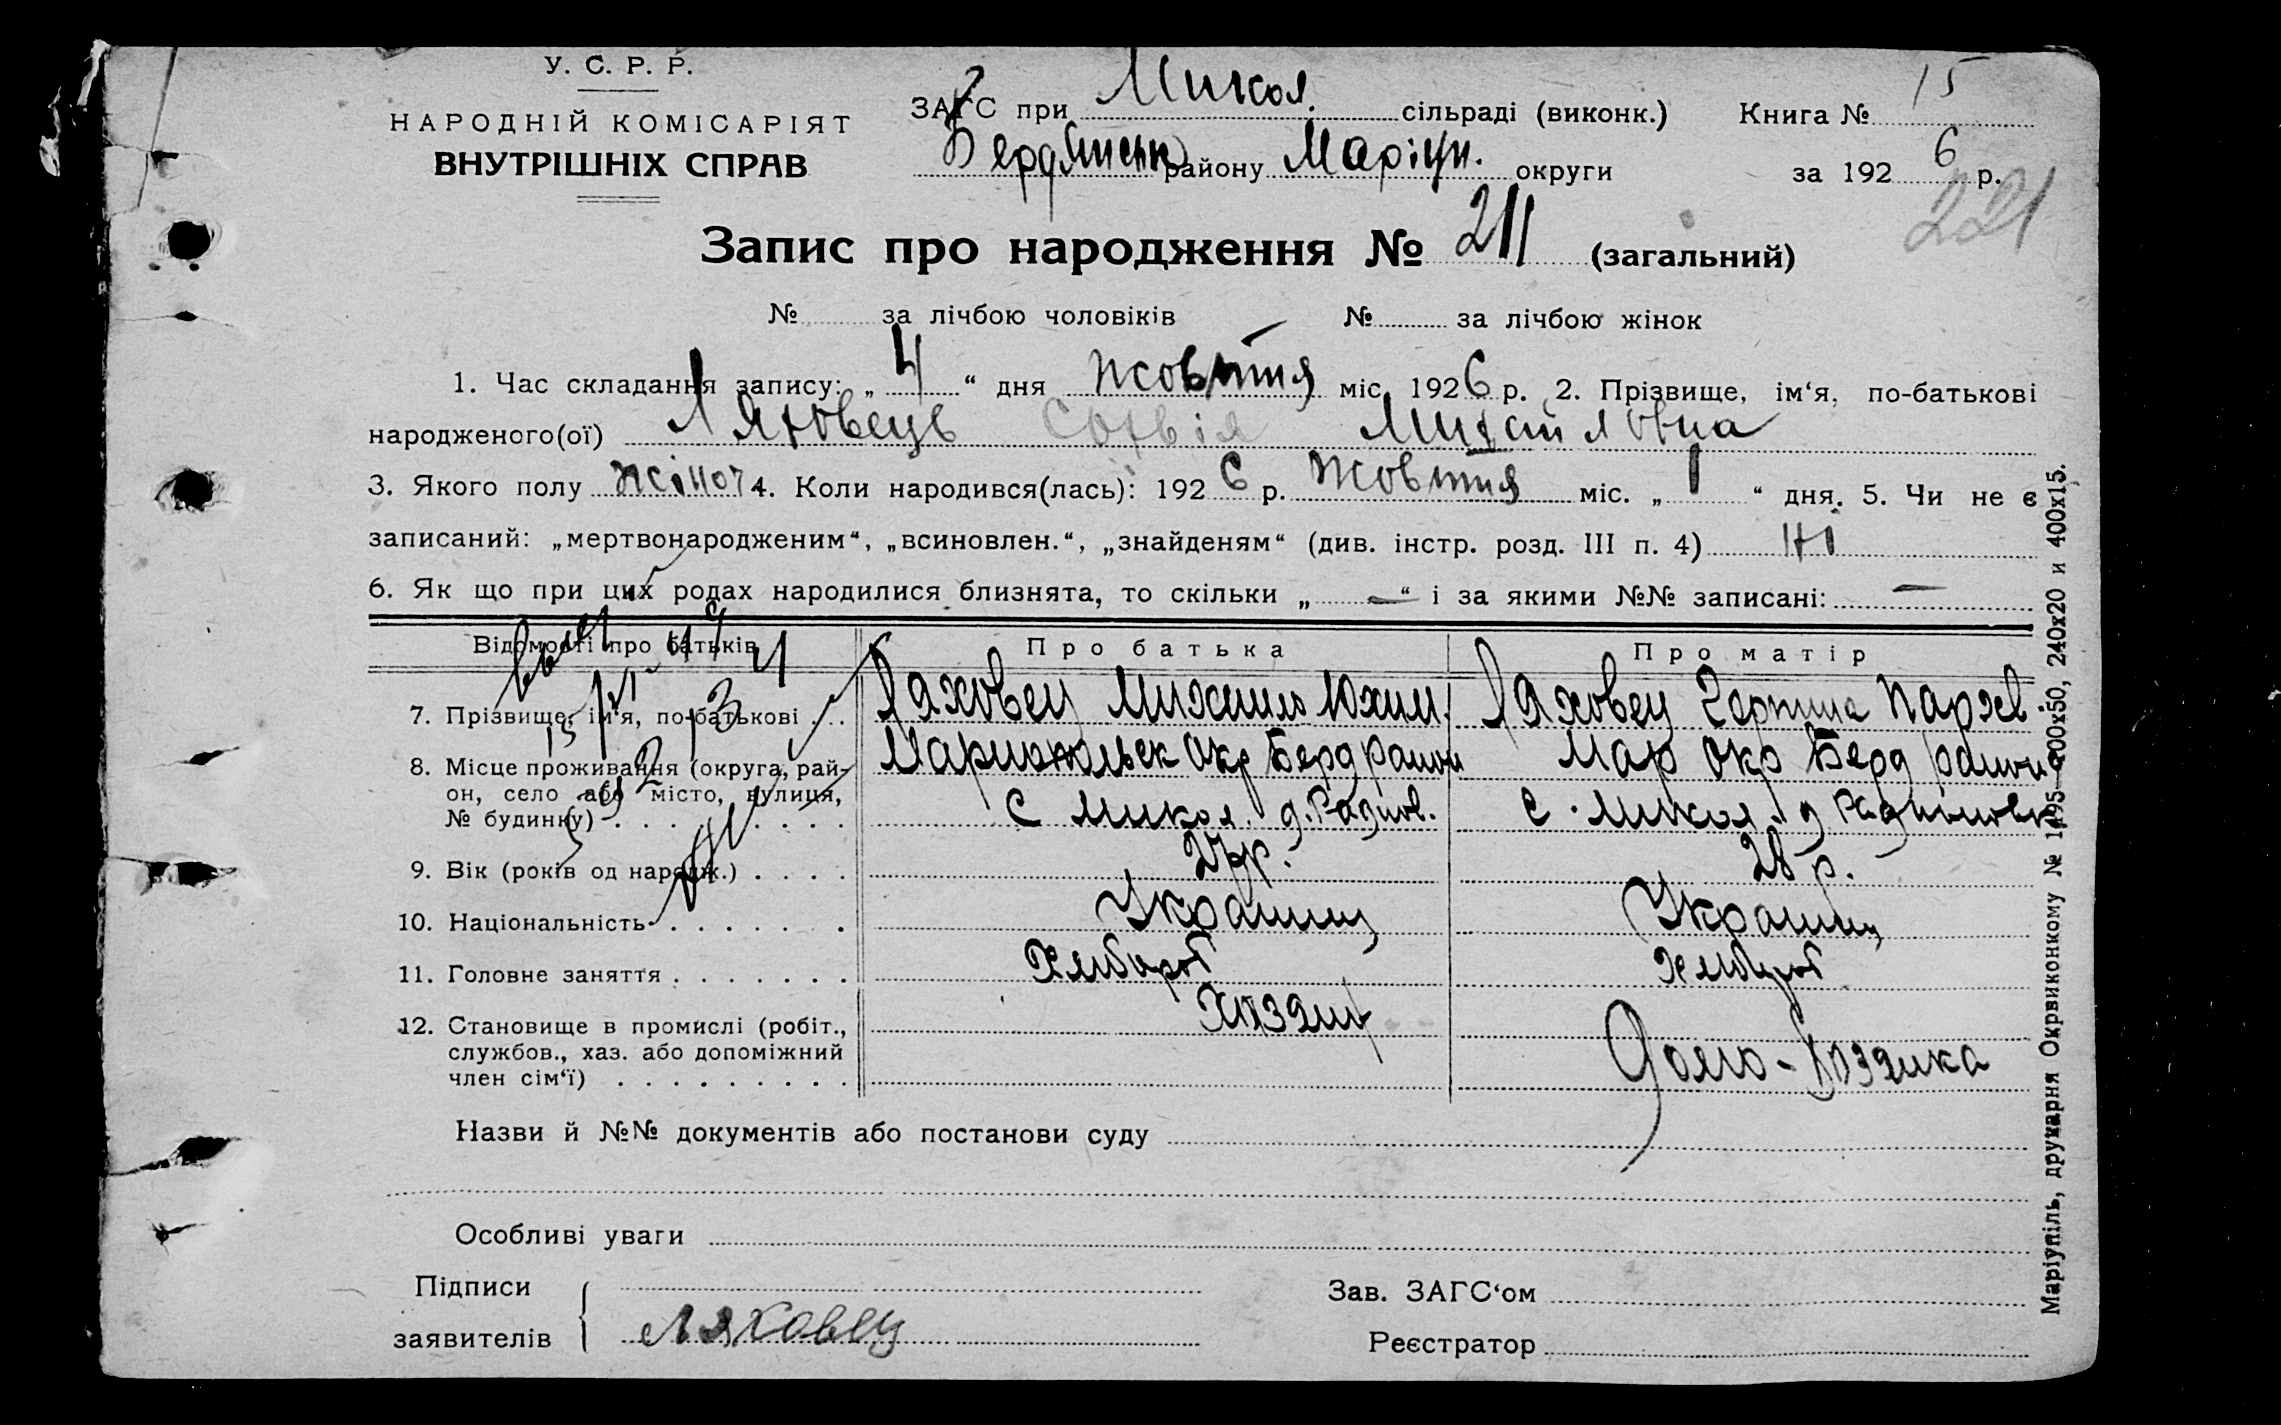 У. С. Р. Р.
НАРОДНІЙ КОМІСАРІЯТ
ВНУТРІШНІХ СПРАВ
ЗАГС при Микол. сільраді (виконк.) Книга № 15
Бердянськ району Маріуп. округи за 1926 р.
221
Запис про народження № 211 (загальний)
№ за лічбою чоловіків № за лічбою жінок
1. Час складання запису: „ 4 “ дня жовтня міс. 1926 р. 2. Прізвище, ім‘я, по-батькові
народженого(ої) Ляховець Софвія Михайловна
3. Якого полу жіноч 4. Коли народився(лась): 1926 р. жовтня міс. „ 1 “ дня. 5. Чи не є
записаний: „мертвонародженим“, „всиновлен.“, „знайденям“ (див. інстр. розд. III п. 4) ні
6. Як що при цих родах народилися близнята, то скільки „ — “ і за якими №№ записані: —
Відомості про батьків Про батька Про матір
7. Прізвище, ім‘я, по-батькові . . . Ляховец Михаил Юхим. Ляховец
8. Місце проживання (округа, рай-
он, село або місто, вулиця,
№ будинку) . . . . . . . . .
Мариюпольск Окр Берд район Мар Окр Берд район
с Микол. с. Микол.
9. Вік (років од народж.) . . . . 27 р. 28 р.
10. Національність . . . . . . . Украинец Украинец
11. Головне заняття . . . . . . . Хлибороб Хлибороб
12. Становище в промислі (робіт.,
службов., хаз. або допоміжний
член сім‘ї) . . . . . . . . .
Хозяин Домо-хозяика
Назви й №№ документів або постанови суду
Особливі уваги
Підписи
заявителів Ляховец
Зав. ЗАГС‘ом
Реєстратор
Маріупіль, друкарня Окрвиконкому № 1195—400х50, 240х20 и 400х15.